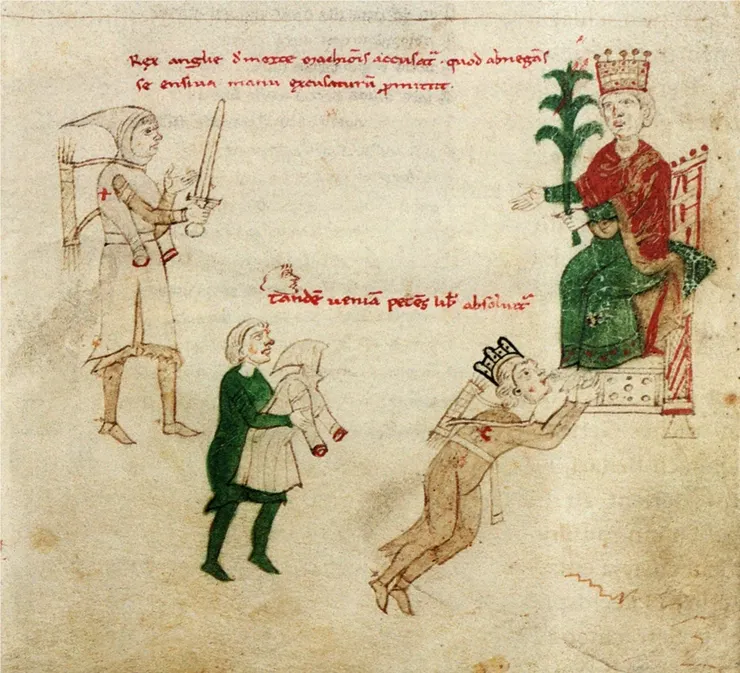 Rex anglie d' morte marchionis accusat᷑ · quod abnegās
se ensiua manu excusaturū p̄mittit.
tandē ueniā petēs lib̄ absoluit᷑